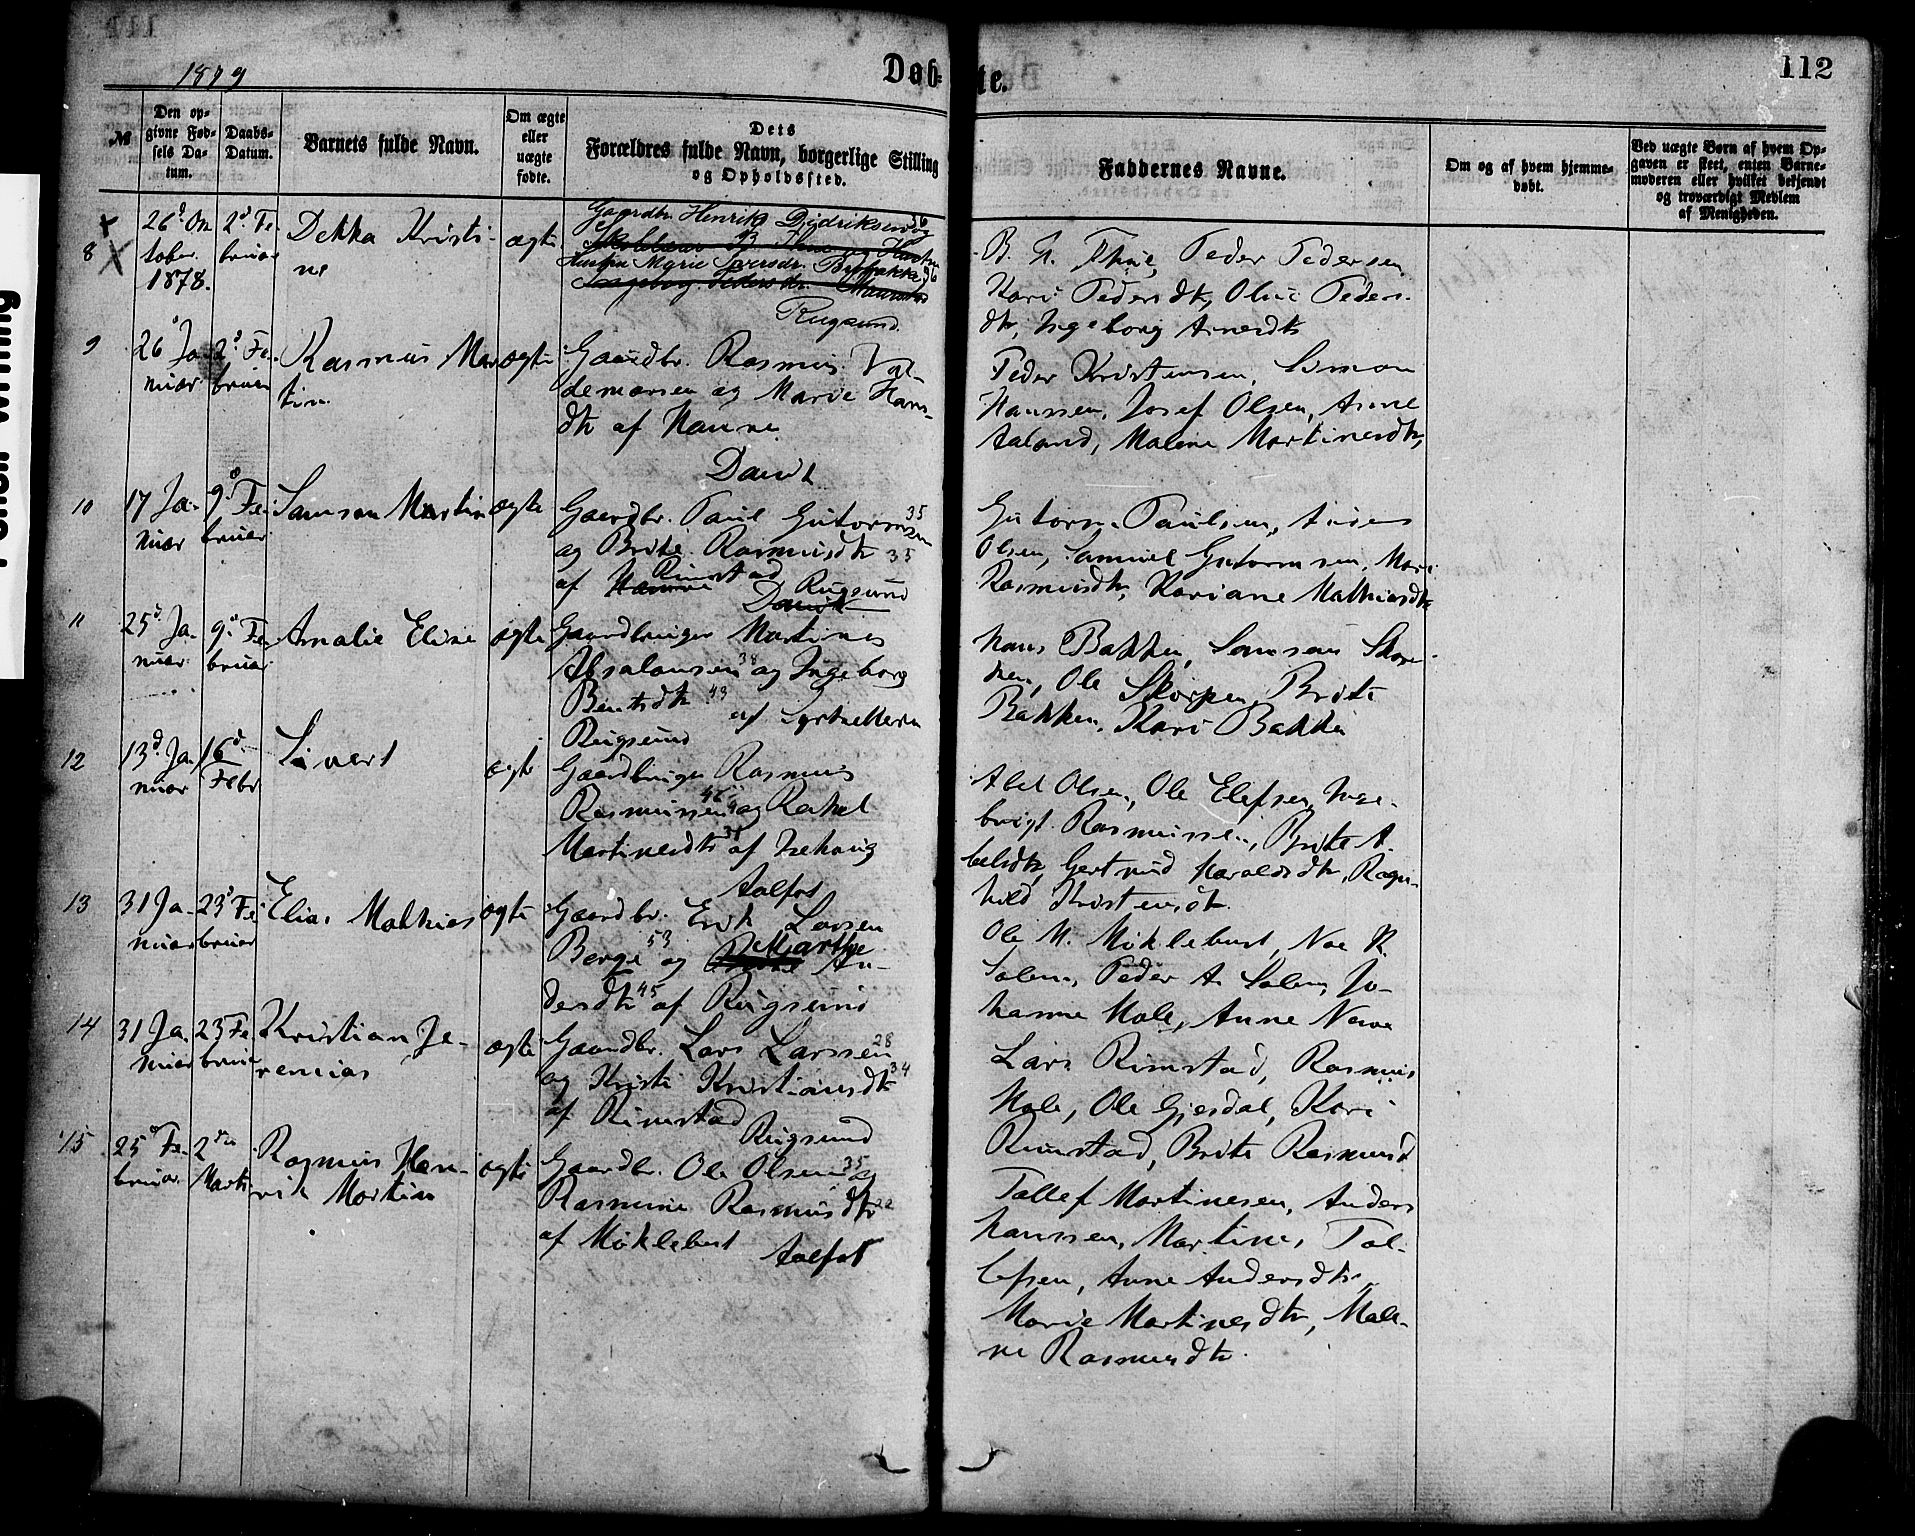 1879
Døb-
te.
112
№
Den op-
givne Fød-
sels Da-
tum.
Daabs-
Datum.
Barnets fulde Navn.
Om ægte
eller
uægte
fødte.
Dets
Forældres fulde Navn, borgerlige Stilling
og Opholdssted.
Faddernes Navne.
Om og af hvem hjemme-
døbt.
Ved uægte Børn af hvem Op-
gaven er skeet, enten Barne-
moderen eller hvilket bekjendt
og troværdigt Medlem
af Menigheden.
8
26d Ok
tober
1878.
2d Fe
bruar
Dekka Kristi-
ne
ægte
Gaardbr. Henrik Didriksen 36 og
Hustru Marie Iversdr. 36
Ingeborg Pedersdr.
Rugsund
B. A. Thue, Peder Pedersen
Kari Pedersdtr, Oline Peders-
dtr, Ingeborg Arnesdtr
9
26 Ja-
nuar
2d Fe-
bruar
Rasmus Mar-
tin
ægte
Gaardbr. Rasmus Val-
demarsen og Marie Hans-
dtr af Havne
Davik
Peder Kristensen, Simon
Hanssen, Josef Olsen, Anne
Aaland, Malene Martinesdtr,
10
17 Ja-
nuar
9d Fe-
bruar
Samson Martin
ægte
Gaardbr. Paul Gutormsen 35
og Brite Rasmusdtr 35
af Havne Rimstad
Davik Rugsund
Gutorm Paulsen,
Olsen, Samuel Gutormsen, Mari
Rasmusdtr, Kariane Mathiasdtr
11
25d Ja-
nuar
9d Fe-
bruar
Amalie Elise
ægte
Gaardbruger Martines
Absalonsen 38 og Ingeborg
Bentsdtr 43 af
Rugsund
Hans Bakken, Samson Skor-
pen, Ole Skorpen, Brite
Bakken, Kari Bakken
12
13d Ja-
nuar
16d
Febr
Sivert
ægte
Gaardbruger Rasmus
Rasmussen 46 og Rakel
Martinesdtr af Isehaug
Aalfot
Abel Olsen, Ole Elefsen, Inge-
brigt Rasmussen, Brite A-
belsdtr, Gertrud Haraldsdtr, Ragn-
hild Kristensdtr.
13
31 Ja-
nuar
23d Fe-
bruar
Elias Mathias
ægte
Gaardbr. Erik Larsen
Berge 53 og Marthe An-
dersdtr 45 af Rugsund
Ole M. Myklebust, Noe R.
Salen, Peder A. Salen, Jo-
hanne Hole, Anne Nave
14
31 Ja-
nuar
23 Fe-
bruar
Kristian Je-
remias
ægte
Gaardbr. Lars Larssen 28
og Kristi Kristiansdtr 34
af Rimstad
Rugsund
Lars Rimstad, Rasmus
Hole, Ole Gjesdal, Kari
Rimstad, Brite Rasmusd
15
25d Fe-
bruar
2den
Marts
Rasmus Hen-
rik Martin
ægte
Gaardbr. Ole Olsen 35 og
Rasmine Rasmusdtr 22
af Myklebust
Aalfot
Tollef Martinesen, Anders
Hanssen, Martines Tol-
lefsen, Anne Andersdtr,
Marie Martinesdtr, Male-
ne Rasmusdtr.